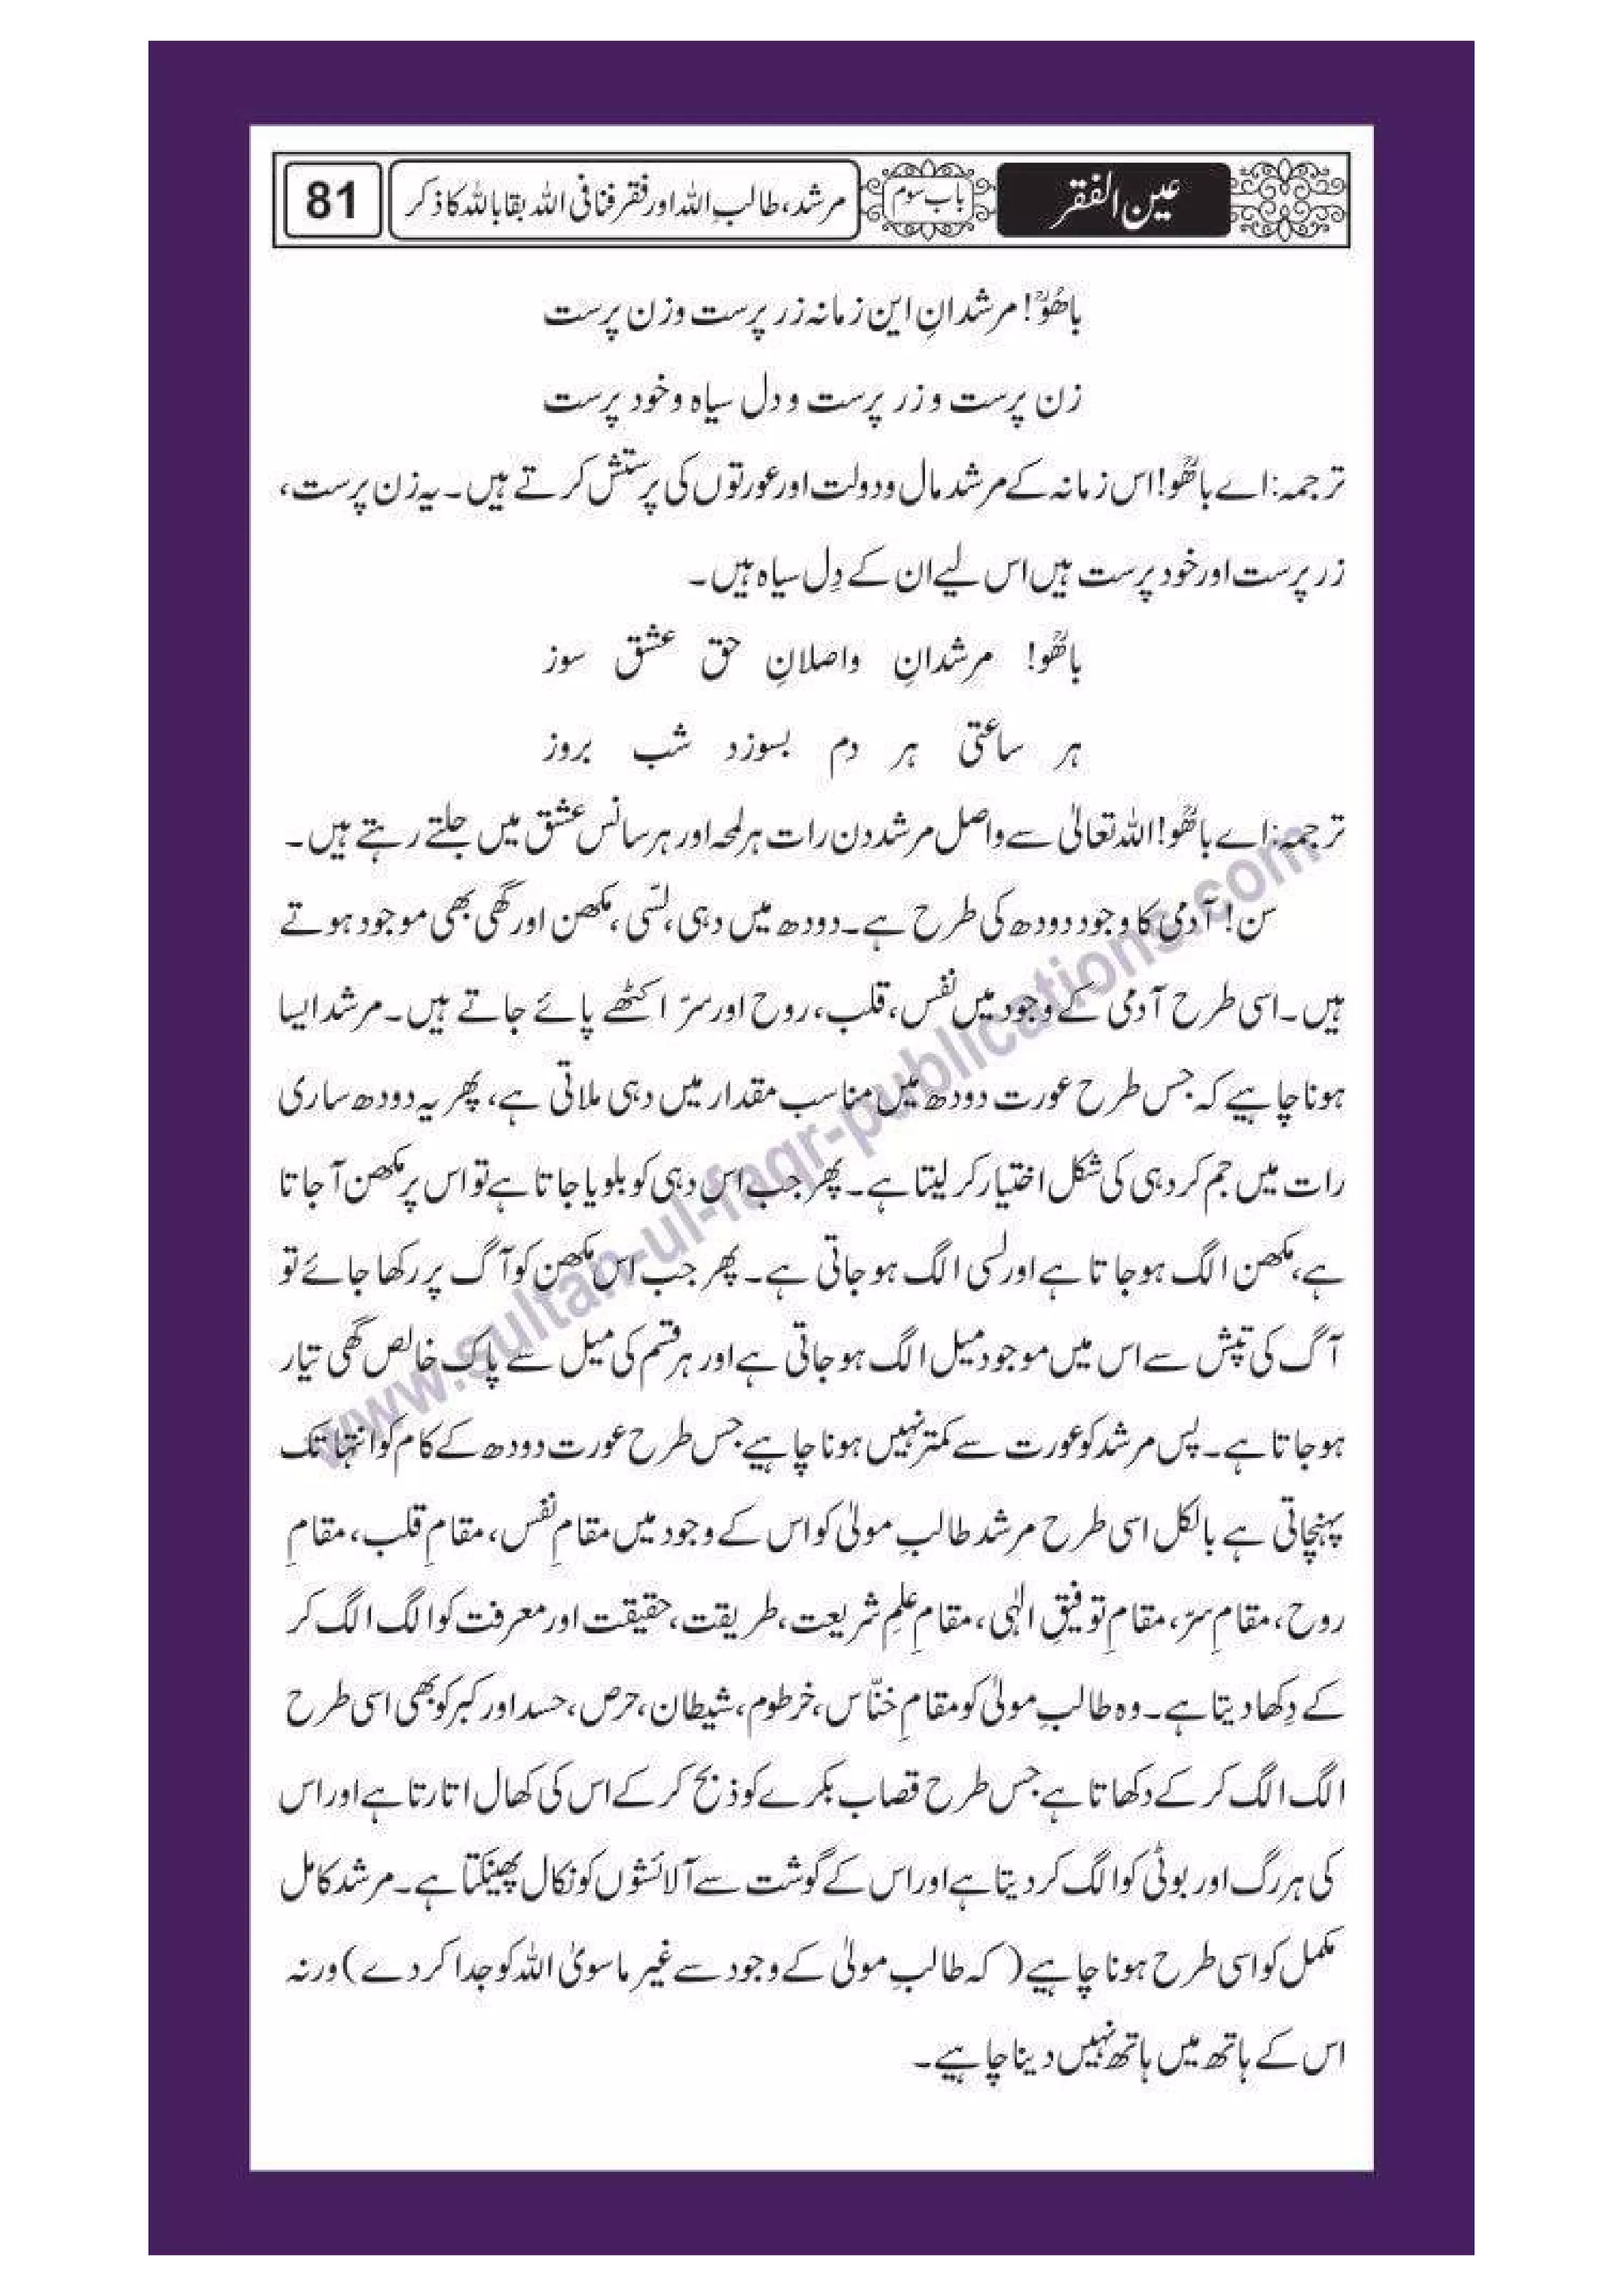 عین الفقر باب سوم مرشد، طالبِ اللہ اور فقر فنا فی اللہ بقا باللہ کا ذکر 81
باھُوؒ! مرشدانِ این زمانہ زر پرست و زن پرست
زن پرست و زر پرست و دل سیاہ و خود پرست
ترجمہ: اے باھُوؒ! اس زمانہ کے مرشد مال و دولت اور عورتوں کی پرستش کرتے ہیں۔ یہ زن پرست،
زر پرست اور خود پرست ہیں اس لیے ان کے دِل سیاہ ہیں۔
باھُوؒ! مرشدانِ واصلانِ حق عشق سوز
ہر ساعتی ہر دم بسوزد شب بروز
ترجمہ: اے باھُوؒ! اللہ تعالیٰ سے واصل مرشد دن رات ہر لمحہ اور ہر سانس عشق میں جلتے رہتے ہیں۔
سن! آدمی کا وجود دودھ کی طرح ہے۔ دودھ میں دہی، لسّی، مکھن اور گھی بھی موجود ہوتے
ہیں۔ اسی طرح آدمی کے وجود میں نفس، قلب، روح اور سِرّ اکٹھے پائے جاتے ہیں۔ مرشد ایسا
ہونا چاہیے کہ جس طرح عورت دودھ میں مناسب مقدار میں دہی ملاتی ہے، پھر یہ دودھ ساری
رات میں جم کر دہی کی شکل اختیار کر لیتا ہے۔ پھر جب اس دہی کو بلویا جاتا ہے تو اس پر مکھن آ جاتا
ہے، مکھن الگ ہو جاتا ہے اور لسی الگ ہو جاتی ہے۔ پھر جب اس مکھن کو آگ پر رکھا جائے تو
آگ کی تپش سے اس میں موجود میل الگ ہو جاتی ہے اور ہر قسم کی میل سے پاک خالص گھی تیار
ہو جاتا ہے۔ پس مرشد کو عورت سے کمتر نہیں ہونا چاہیے جس طرح عورت دودھ کے کام کو انتہا تک
پہنچاتی ہے بالکل اسی طرح مرشد طالبِ مولیٰ کو اس کے وجود میں مقامِ نفس، مقامِ قلب، مقامِ
روح، مقامِ سِرّ، مقامِ توفیقِ الٰہی، مقامِ علمِ شریعت، طریقت، حقیقت اور معرفت کو الگ الگ کر
کے دِکھا دیتا ہے۔ وہ طالبِ مولیٰ کو مقامِ خنّاس، خرطوم، شیطان، حرص، حسد اور کبر کو بھی اسی طرح
الگ الگ کر کے دکھاتا ہے جس طرح قصاب بکرے کو ذبح کر کے اس کی کھال اتارتا ہے اور اس
کی ہر رگ اور بوٹی کو الگ کر دیتا ہے اور اس کے گوشت سے آلائشوں کو نکال پھینکتا ہے۔ مرشد کامل
مکمل کو اسی طرح ہونا چاہیے (کہ طالبِ مولیٰ کے وجود سے غیر ماسویٰ اللہ کو جدا کر دے) ورنہ
اس کے ہاتھ میں ہاتھ نہیں دینا چاہیے۔
www.sultan-ul-faqr-publications.com